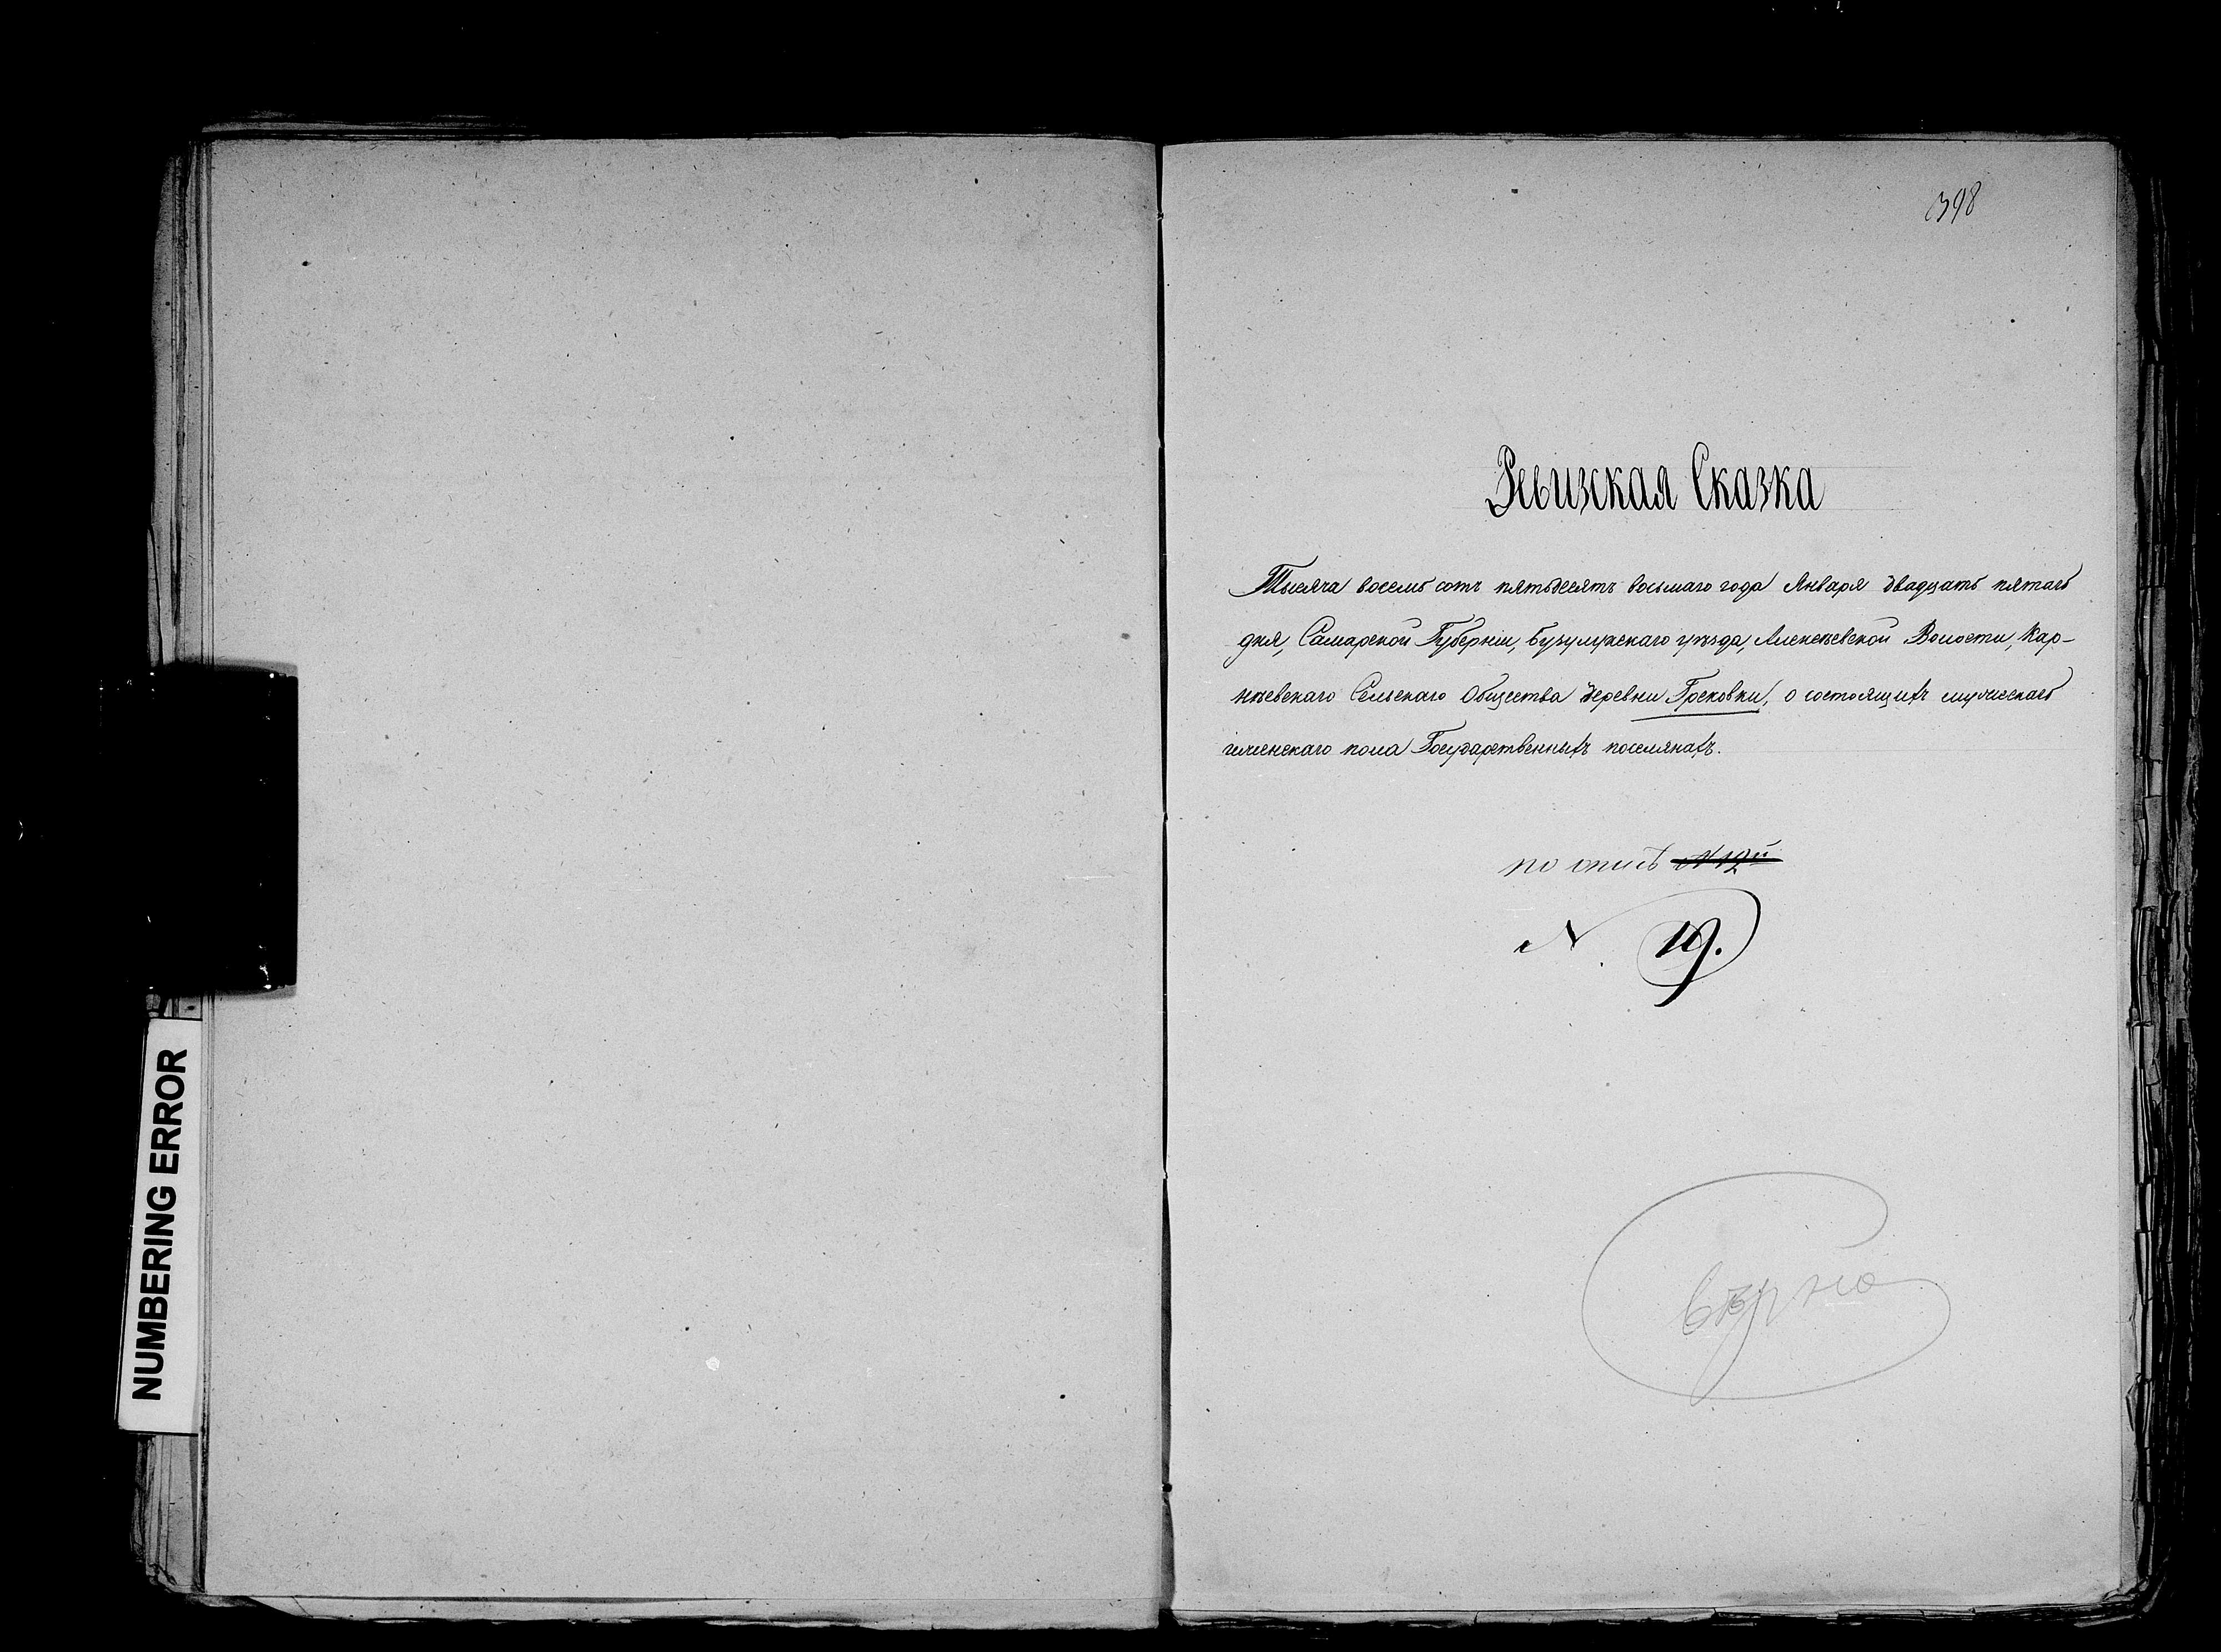 398
Ревизская Сказка
Тысяча восемь сотъ пятьдесятъ восьмаго года Января двадцать пятаго
дня, Самарской Губерніи, Бузулукскаго уѣзда, Алексѣевской Волости, Кар-
нѣевскаго Сельскаго Общества деревни Грековки, о состоящихъ мужескаго
и женскаго пола Государственныхъ поселянахъ.
по описѣ
N 19.
вѣрно
NUMBERING ERROR